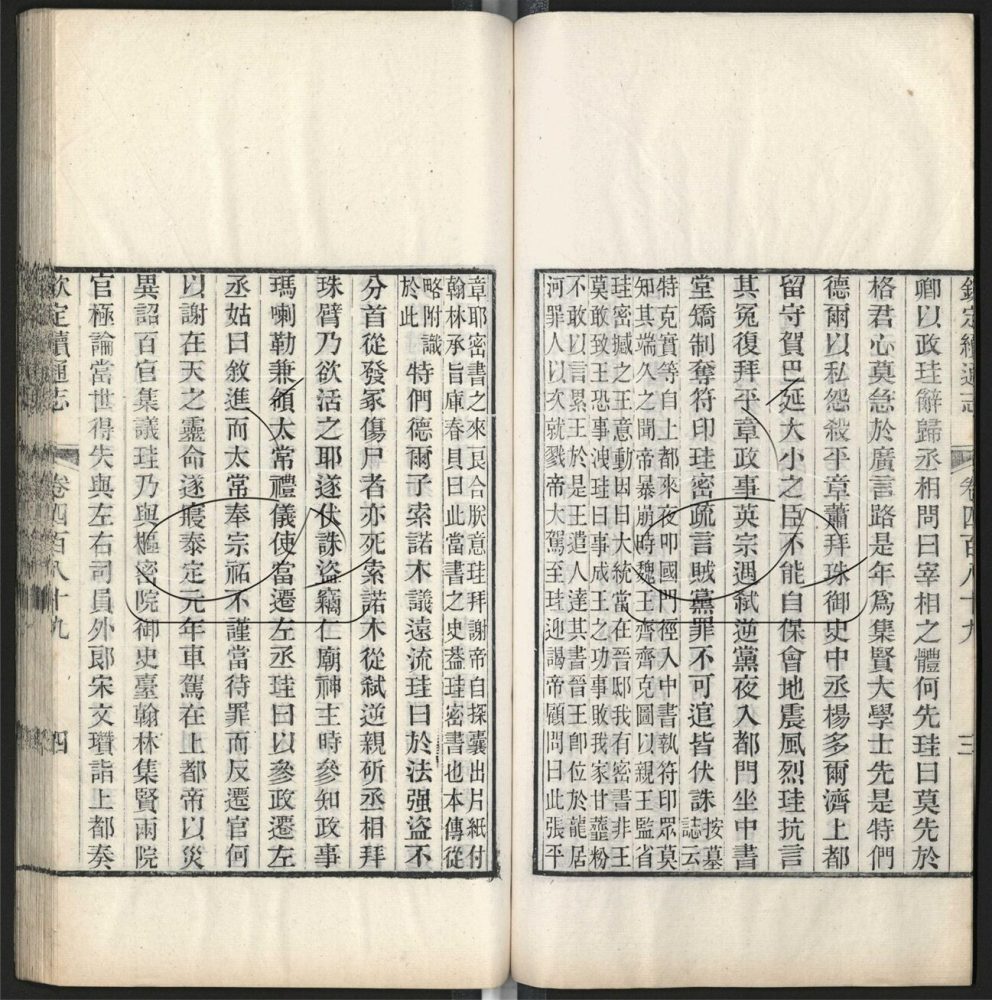 欽定續通志 卷四百八十九 三
卿以政珪辭歸丞相問曰宰相之體何先珪曰莫先於
格君心莫急於廣言路是年爲集賢大學士先是特們
德爾以私怨殺平章蕭拜珠御史中丞楊多爾濟上都
留守賀巴延大小之臣不能自保會地震風烈珪抗言
其冤復拜平章政事英宗遇弑逆黨夜入都門坐中書
堂矯制奪符印珪密疏言賊黨罪不可逭皆伏誅
按墓
誌云
特克實等自上都來夜叩國門徑入中書執符印眾莫
知其端久之聞帝暴崩時魏王齊齊克圖以親王監省
珪密撼之王意動因曰大統當在晉邸我有密書非王
莫敢致王恐事洩珪曰事成王之功事敗我家甘虀粉
不敢以言累王於是王遣人達其書晉王卽位於龍居
河罪人以次就戮帝大駕至珪迎謁帝顧問曰此張平
章耶密書之來良合朕意珪拜謝帝自探囊出片紙付
翰林承旨庫春貝曰此當書之史葢珪密書也本傳從
略附識
於此
特們德爾子索諾木議遠流珪曰於法强盜不
分首從發冢傷尸者亦死索諾木從弑逆親斫丞相拜
珠臂乃欲活之耶遂伏誅盜竊仁廟神主時參知政事
瑪喇勒兼領太常禮儀使當遷左丞珪曰以參政遷左
丞姑曰敘進而太常奉宗祏不謹當待罪而反遷官何
以謝在天之靈命遂寢泰定元年車駕在上都帝以災
異詔百官集議珪乃與樞密院御史臺翰林集賢兩院
官極論當世得失與左右司員外郞宋文瓚詣上都奏
欽定續通志 卷四百八十九 四